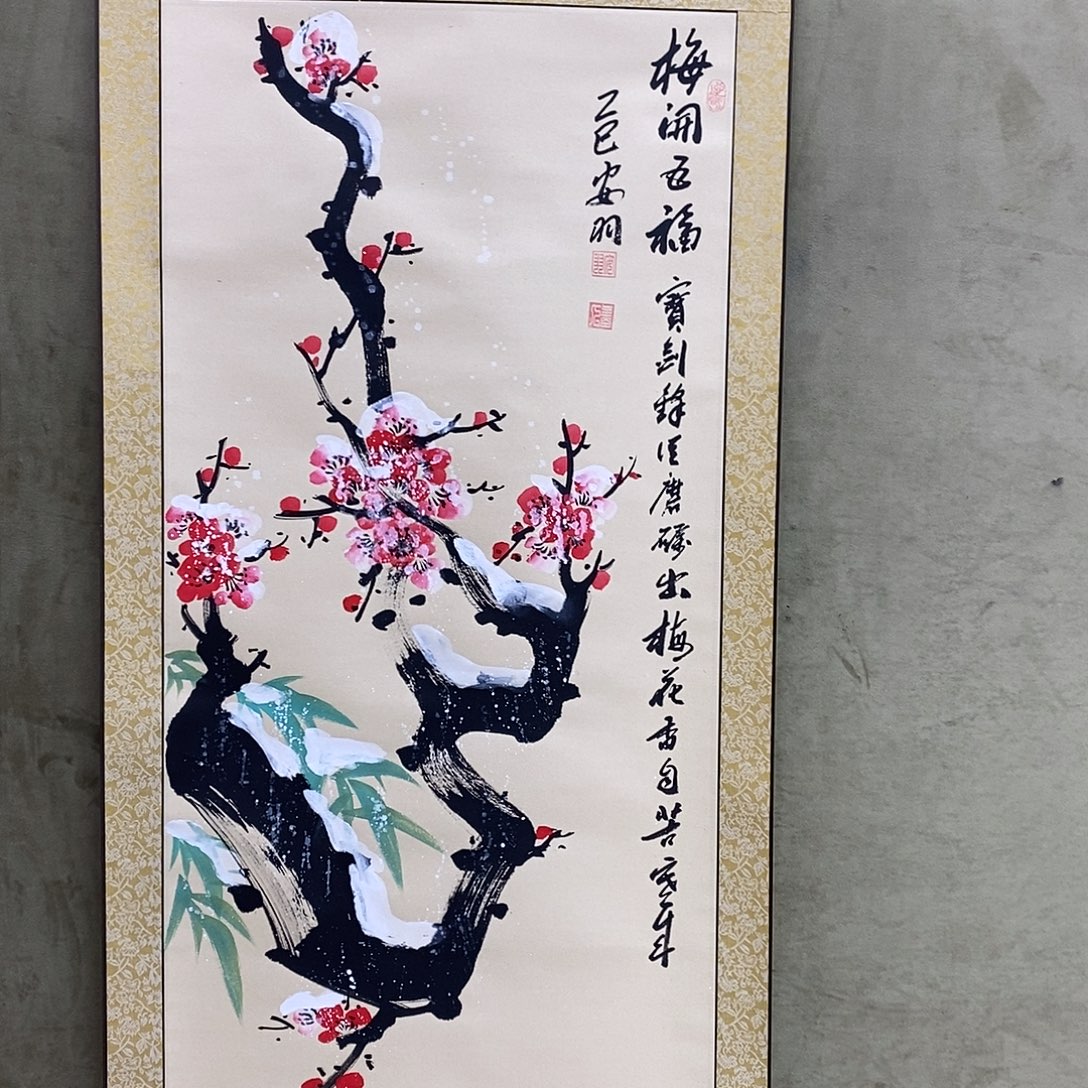 梅開五福
寶劍鋒從磨礪出梅花香自苦寒
乙巳安羽